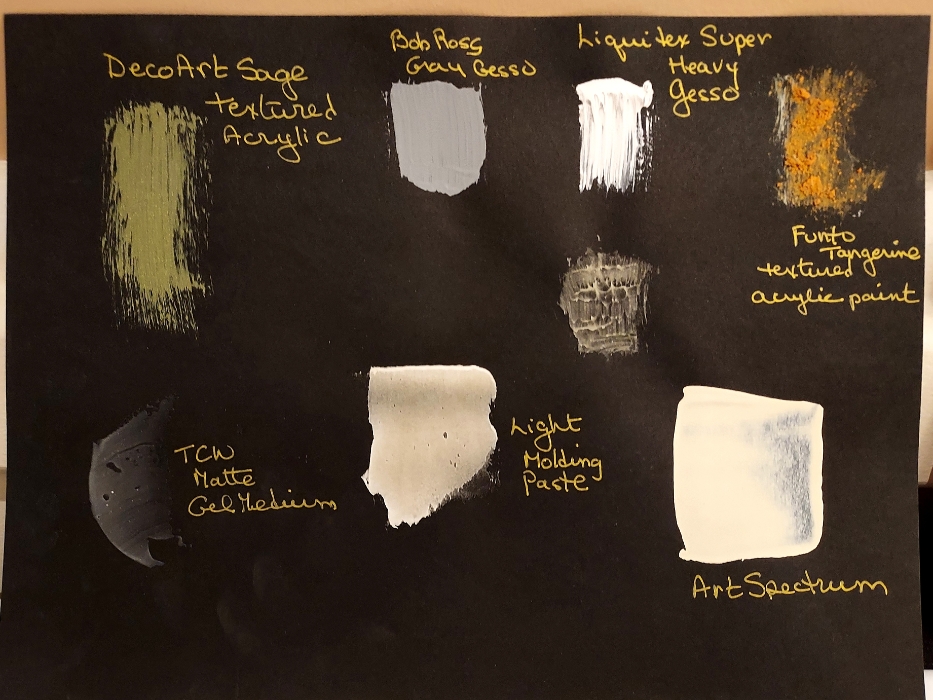 DecoArt Sage
textured
Acrylic
Bob Ross
Gray Gesso
Liquitex Super
Heavy
Gesso
Funto
Tangerine
textured
acrylic paint
TCW
Matte
Gel Medium
Light
Molding
Paste
Art Spectrum